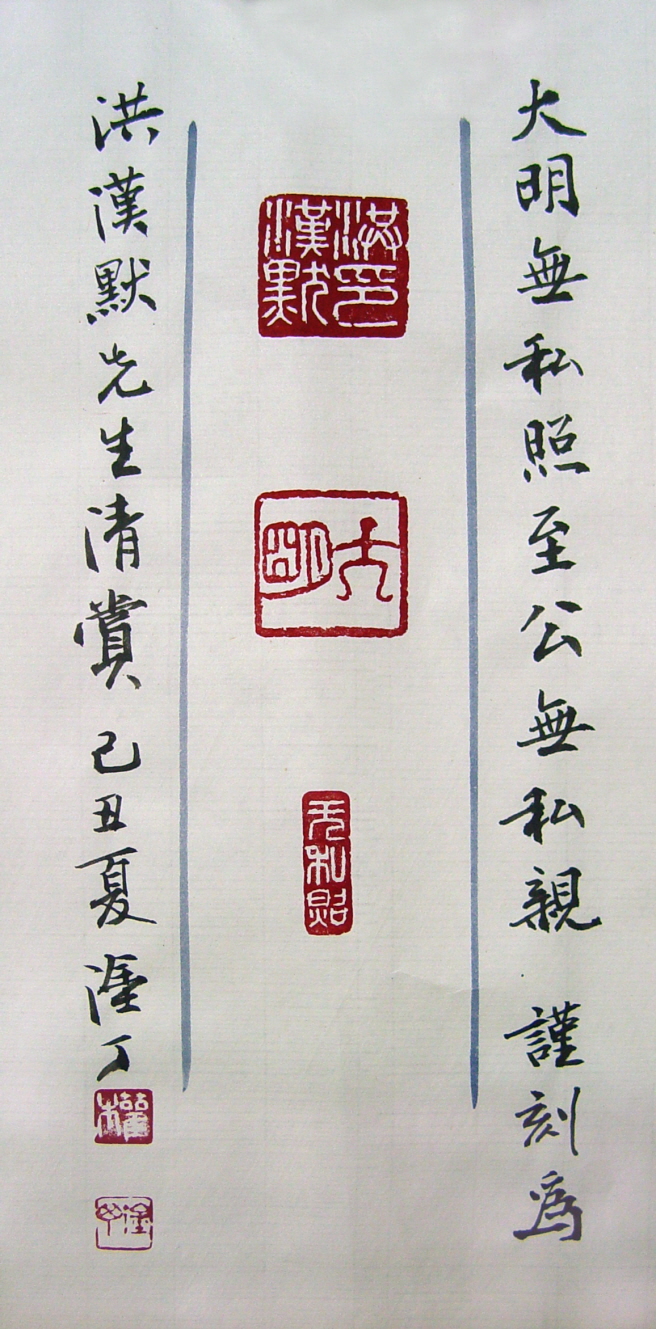 大明無私照至公無私親 謹刻爲
洪印漢默
大明
无私照
洪漢默先生清賞 己丑夏